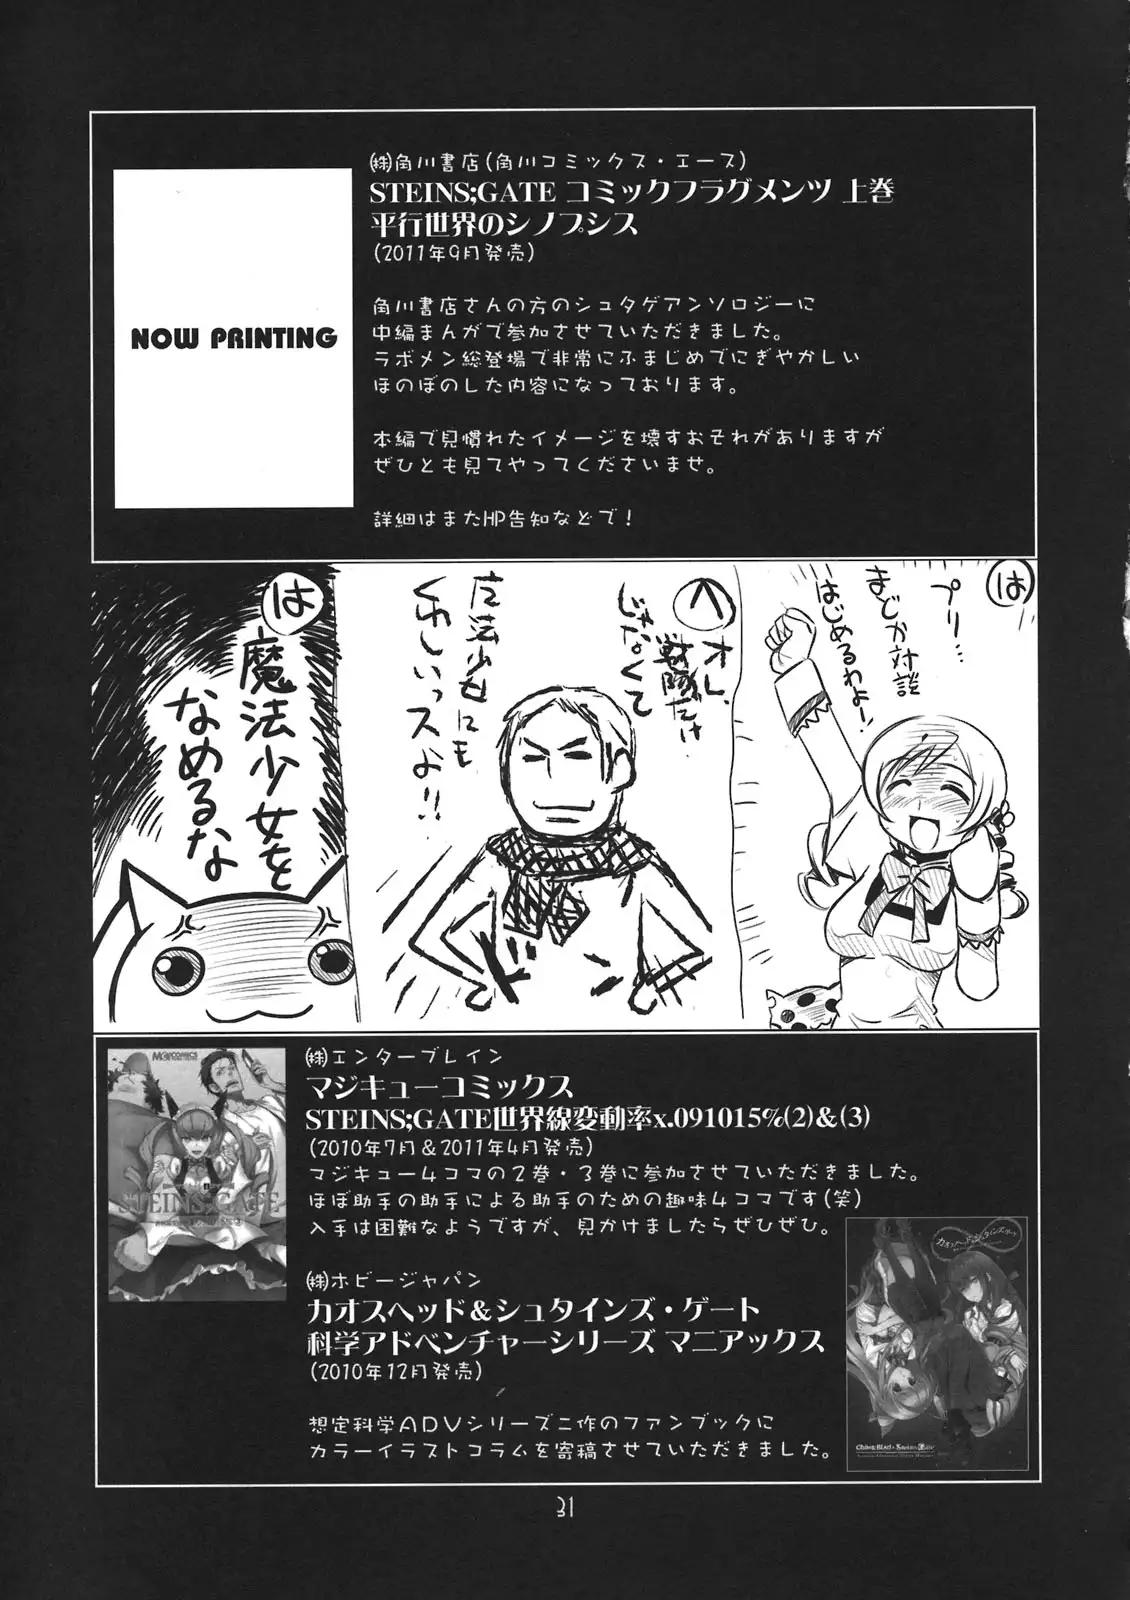 ㈱角川書店(角川コミックス・エース)
STEINS;GATE コミックフラグメンツ 上巻
平行世界のシノプシス
(2011年9月発売)
NOW PRINTING
角川書店さんの方のシュタゲアンソロジーに
中編まんがで参加させていただきました。
ラボメン総登場で非常にふまじめでにぎやかしい
ほのぼのした内容になっております。
本編で見慣れたイメージを壊すおそれがありますが
ぜひとも見てやってくださいませ。
詳細はまたHP告知などで！
は
プリ…
まどか対談
はじめるわよ！
へ
オレ、
戦隊だけ
じゃなくて
魔法少女にも
くわしいっスよ!!
ドン
は
魔法少女を
なめるな
㈱エンターブレイン
マジキューコミックス
STEINS;GATE世界線変動率x.091015%(2)&(3)
(2010年7月&2011年4月発売)
マジキュー4コマの2巻・3巻に参加させていただきました。
ほぼ助手の助手による助手のための趣味4コマです(笑)
入手は困難なようですが、見かけましたらぜひぜひ。
STEINS;GATE
㈱ホビージャパン
カオスヘッド&シュタインズ・ゲート
科学アドベンチャーシリーズ マニアックス
(2010年12月発売)
想定科学ADVシリーズ二作のファンブックに
カラーイラストコラムを寄稿させていただきました。
31